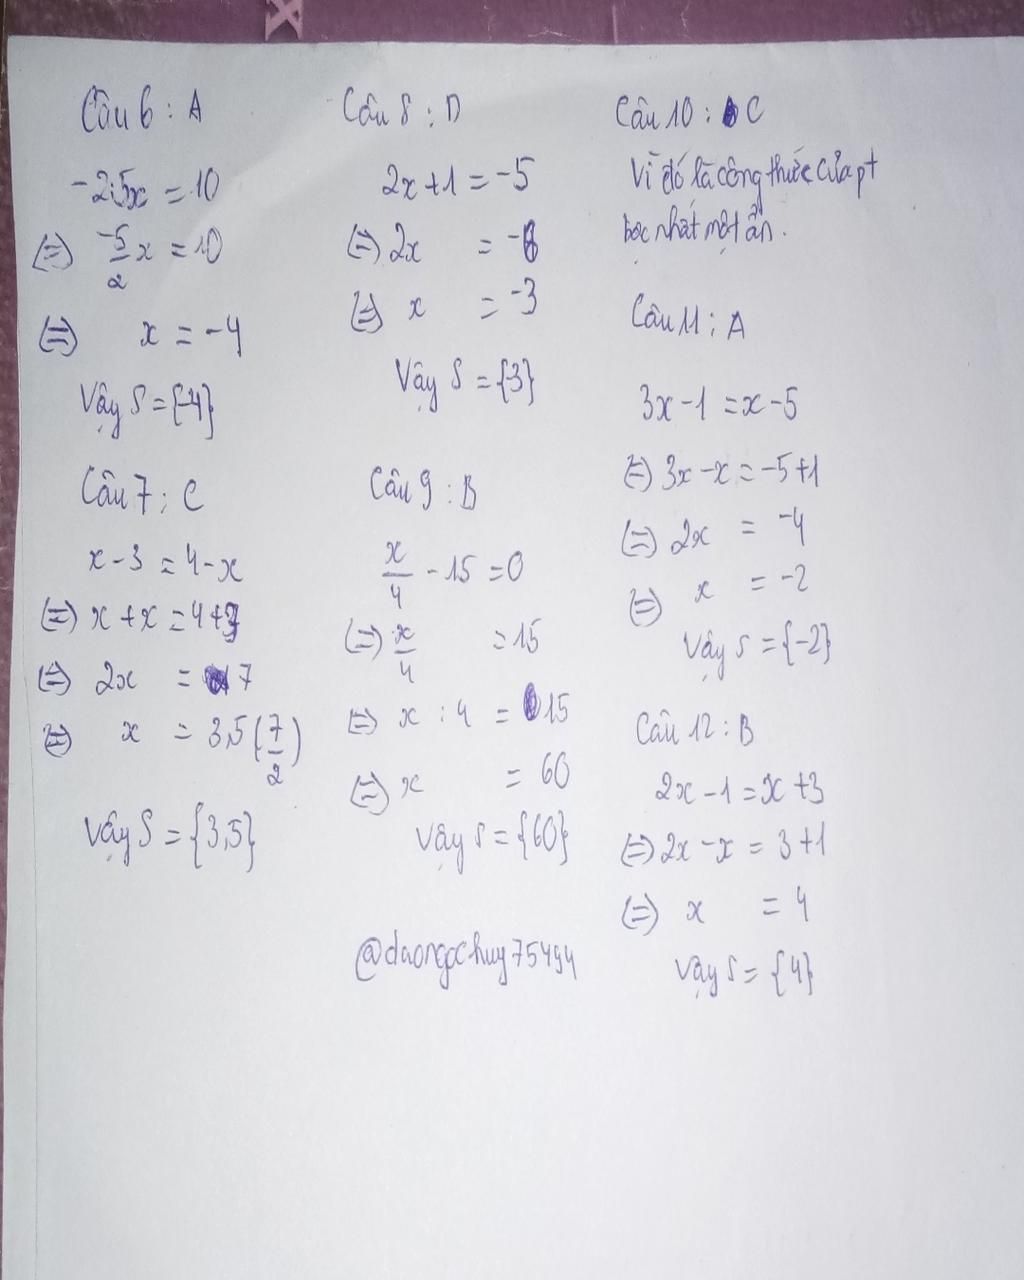 Câu 6 : A
-2,5x = 10
(=) -5/2 x = 10
(=) x = -4
Vậy S = {-4}
Câu 7 : C
x - 3 = 4 - x
(=) x + x = 4 + 3
(=) 2x = 7
(=) x = 3,5 (7/2)
Vậy S = {3,5}
Câu 8 : D
2x + 1 = -5
(=) 2x = -6
(=) x = -3
Vậy S = {3}
Câu 9 : B
x/4 - 15 = 0
(=) x/4 = 15
(=) x : 4 = 15
(=) x = 60
Vậy S = {60}
@daongochuy75494
Câu 10 : C
Vì đó là công thức của pt
bậc nhất một ẩn.
Câu 11 : A
3x - 1 = x - 5
(=) 3x - x = -5 + 1
(=) 2x = -4
(=) x = -2
Vậy S = {-2}
Câu 12 : B
2x - 1 = x + 3
(=) 2x - x = 3 + 1
(=) x = 4
Vậy S = {4}